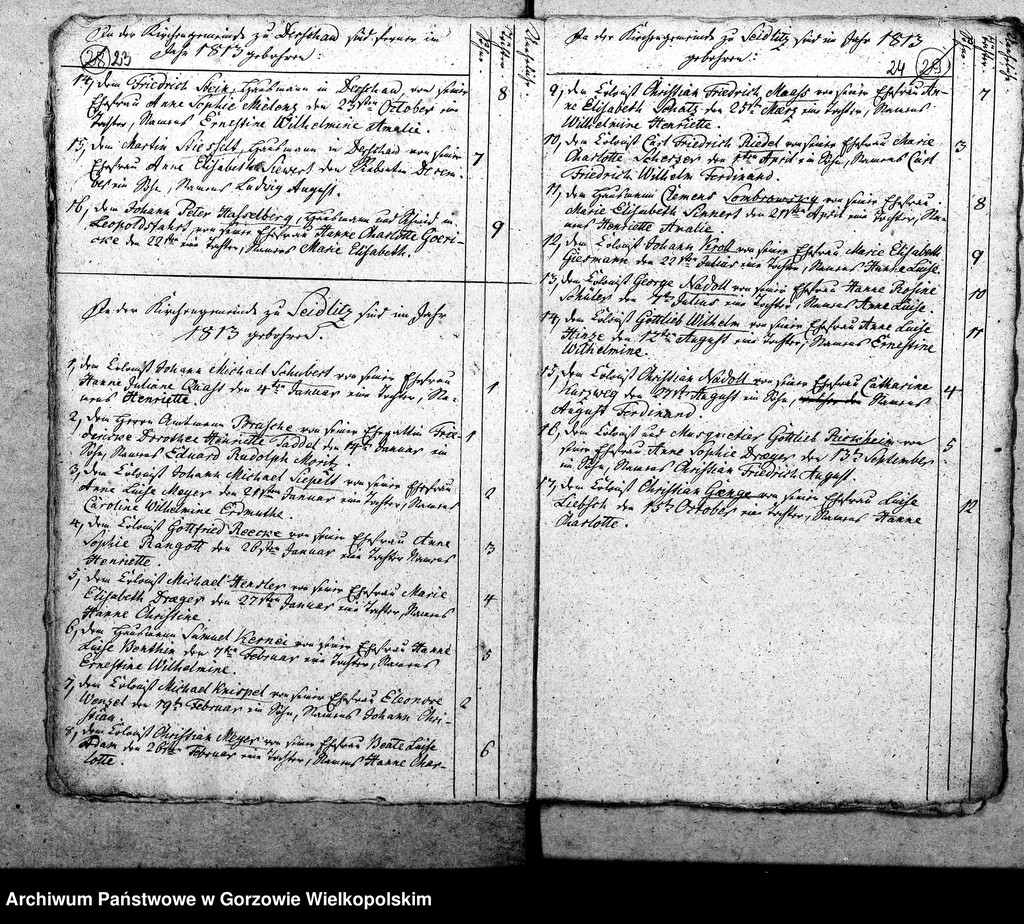 In der Kirchengemeinde zu Derschau sind ferner im
Jahr 1813 gebohren:
28 23
Söhne
Töchter
Uneheliche
14, dem Friedrich Stein, Hausmann in Derschau, von seiner 8
Ehefrau Anne Sophie den 23sten October eine
Tochter, Namens Ernestine Wilhelmine Amalie.
15, dem Martin Hausmann in Derschau von seiner 7
Ehefrau Anne Elisabeth Siewert den Decem-
ber ein Sohn, Namens Ludwig August.
16, dem Johann Peter Hasselberg, Hausmann und Schmid in 9
Leopoldsfahrt, von seiner Ehefrau Hanne Charlotte Goeri-
cke den 22ten eine Tochter, Namens Marie Elisabeth.
In der Kirchengemeinde zu Seidlitz sind im Jahr
1813 gebohren.
1, dem Colonist Johann Michael Schubert von seiner Ehefrau 1
Hanne Juliane Quast den 4ten Januar eine Tochter, Na-
mens Henriette
2, dem Herrn Amtmann Brasche von seiner Ehegattin Frie- 1
dericke Dorothee Henriette Taddel den 14ten Januar ein
Sohn, Namens Eduard Rudolph Moritz.
3, dem Colonist Johann Michael von seiner Ehefrau 2
Anne Luise Meyer den 21sten Januar eine Tochter, Namens
Caroline Wilhelmine Erdmuthe.
4, dem Colonist Gottfried Reecke von seiner Ehefrau Anne 3
Sophie Rangott den 26sten Januar eine Tochter Namens
Henriette.
5, dem Colonist Michael Hensler von seiner Ehefrau Marie 4
Elisabeth Draeger den 27sten Januar eine Tochter, Namens
Hanne Christine.
6, dem Hausmann Samuel Kernei von seiner Ehefrau Hanne 5
Luise Benthin den 7ten Februar eine Tochter, Namens
Ernestine Wilhelmine.
7, dem Colonist Michael Knispel von seiner Ehefrau Eleonore 2
Wenzel den 19ten Februar ein Sohn, Namens Johann Chri-
stian.
8, dem Colonist Christian Meyer von seiner Ehefrau Beate Luise 6
Adam den 26sten Februar eine Tochter, Namens Hanne Char-
lotte.
In der Kirchengemeinde zu Seidlitz sind im Jahr 1813
gebohren:
24 29
Söhne
Töchter
Uneheliche
9, dem Colonist Christian Friedrich Maass von seiner Ehefrau An- 7
ne Elisabeth Schatz den 25sten Maerz eine Tochter, Namens
Wilhelmine Henriette.
10, dem Colonist Carl Friedrich Riedel von seiner Ehefrau Marie 3
Charlotte Scherzer den April ein Sohn, Namens Carl
Friedrich Wilhelm Ferdinand.
11, dem Hausmann Clemens Lombrowszky von seiner Ehefrau 8
Marie Elisabeth Sinnert den 21sten April eine Tochter, Na-
mens Henriette Amalie.
12, dem Colonist Johann Kroll von seiner Ehefrau Marie Elisabeth 9
Giesmann den 22sten Julius eine Tochter, Namens Hanne Luise.
13, dem Colonist George Nadoll von seiner Ehefrau Hanne Rosine 10
Schüler den 7ten Julius eine Tochter, Namens Anne Luise.
14, dem Colonist Gottlieb Wilhelm von seiner Ehefrau Anne Luise 11
Hinze den 12ten August eine Tochter, Namens Ernestine
Wilhelmine.
15, dem Colonist Christian Nadoll von seiner Ehefrau Catharine 4
Kurzweg den 21sten August ein Sohn, Namens
August Ferdinand.
16, dem Colonist und Musquetier Gottlieb Burkheim von 5
seiner Ehefrau Anne Sophie Draeger den 13ten September
ein Sohn, Namens Christian Friedrich August.
17, dem Colonist Christian Gaenge von seiner Ehefrau Luise 12
Liebsch den 15ten October eine Tochter, Namens Hanne
Charlotte.
Archiwum Państwowe w Gorzowie Wielkopolskim